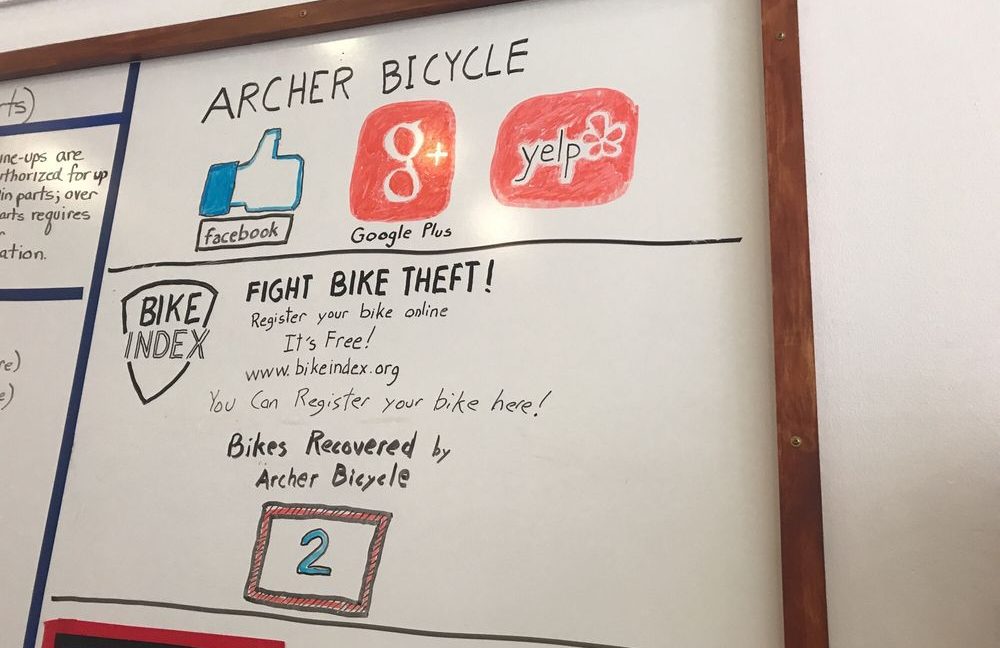 ARCHER BICYCLE
facebook
g+
Google Plus
yelp
BIKE
INDEX
FIGHT BIKE THEFT!
Register your bike online
It's Free!
www.bikeindex.org
You Can Register your bike here!
Bikes Recovered by
Archer Bicycle
2
ts)
une-ups are
thorized for up
in parts; over
arts requires
ation.
re)
e)